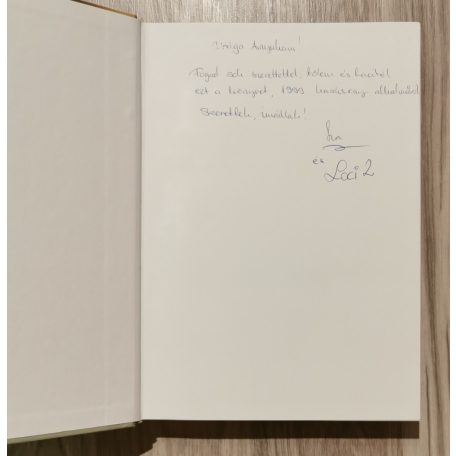 Drága Anyukám!
Fogad sok szeretettel, tőlem és Lacitól
ezt a könyvet, 1999 karácsony alkalmából.
Szeretlek, imádlak!
és
Laci 2